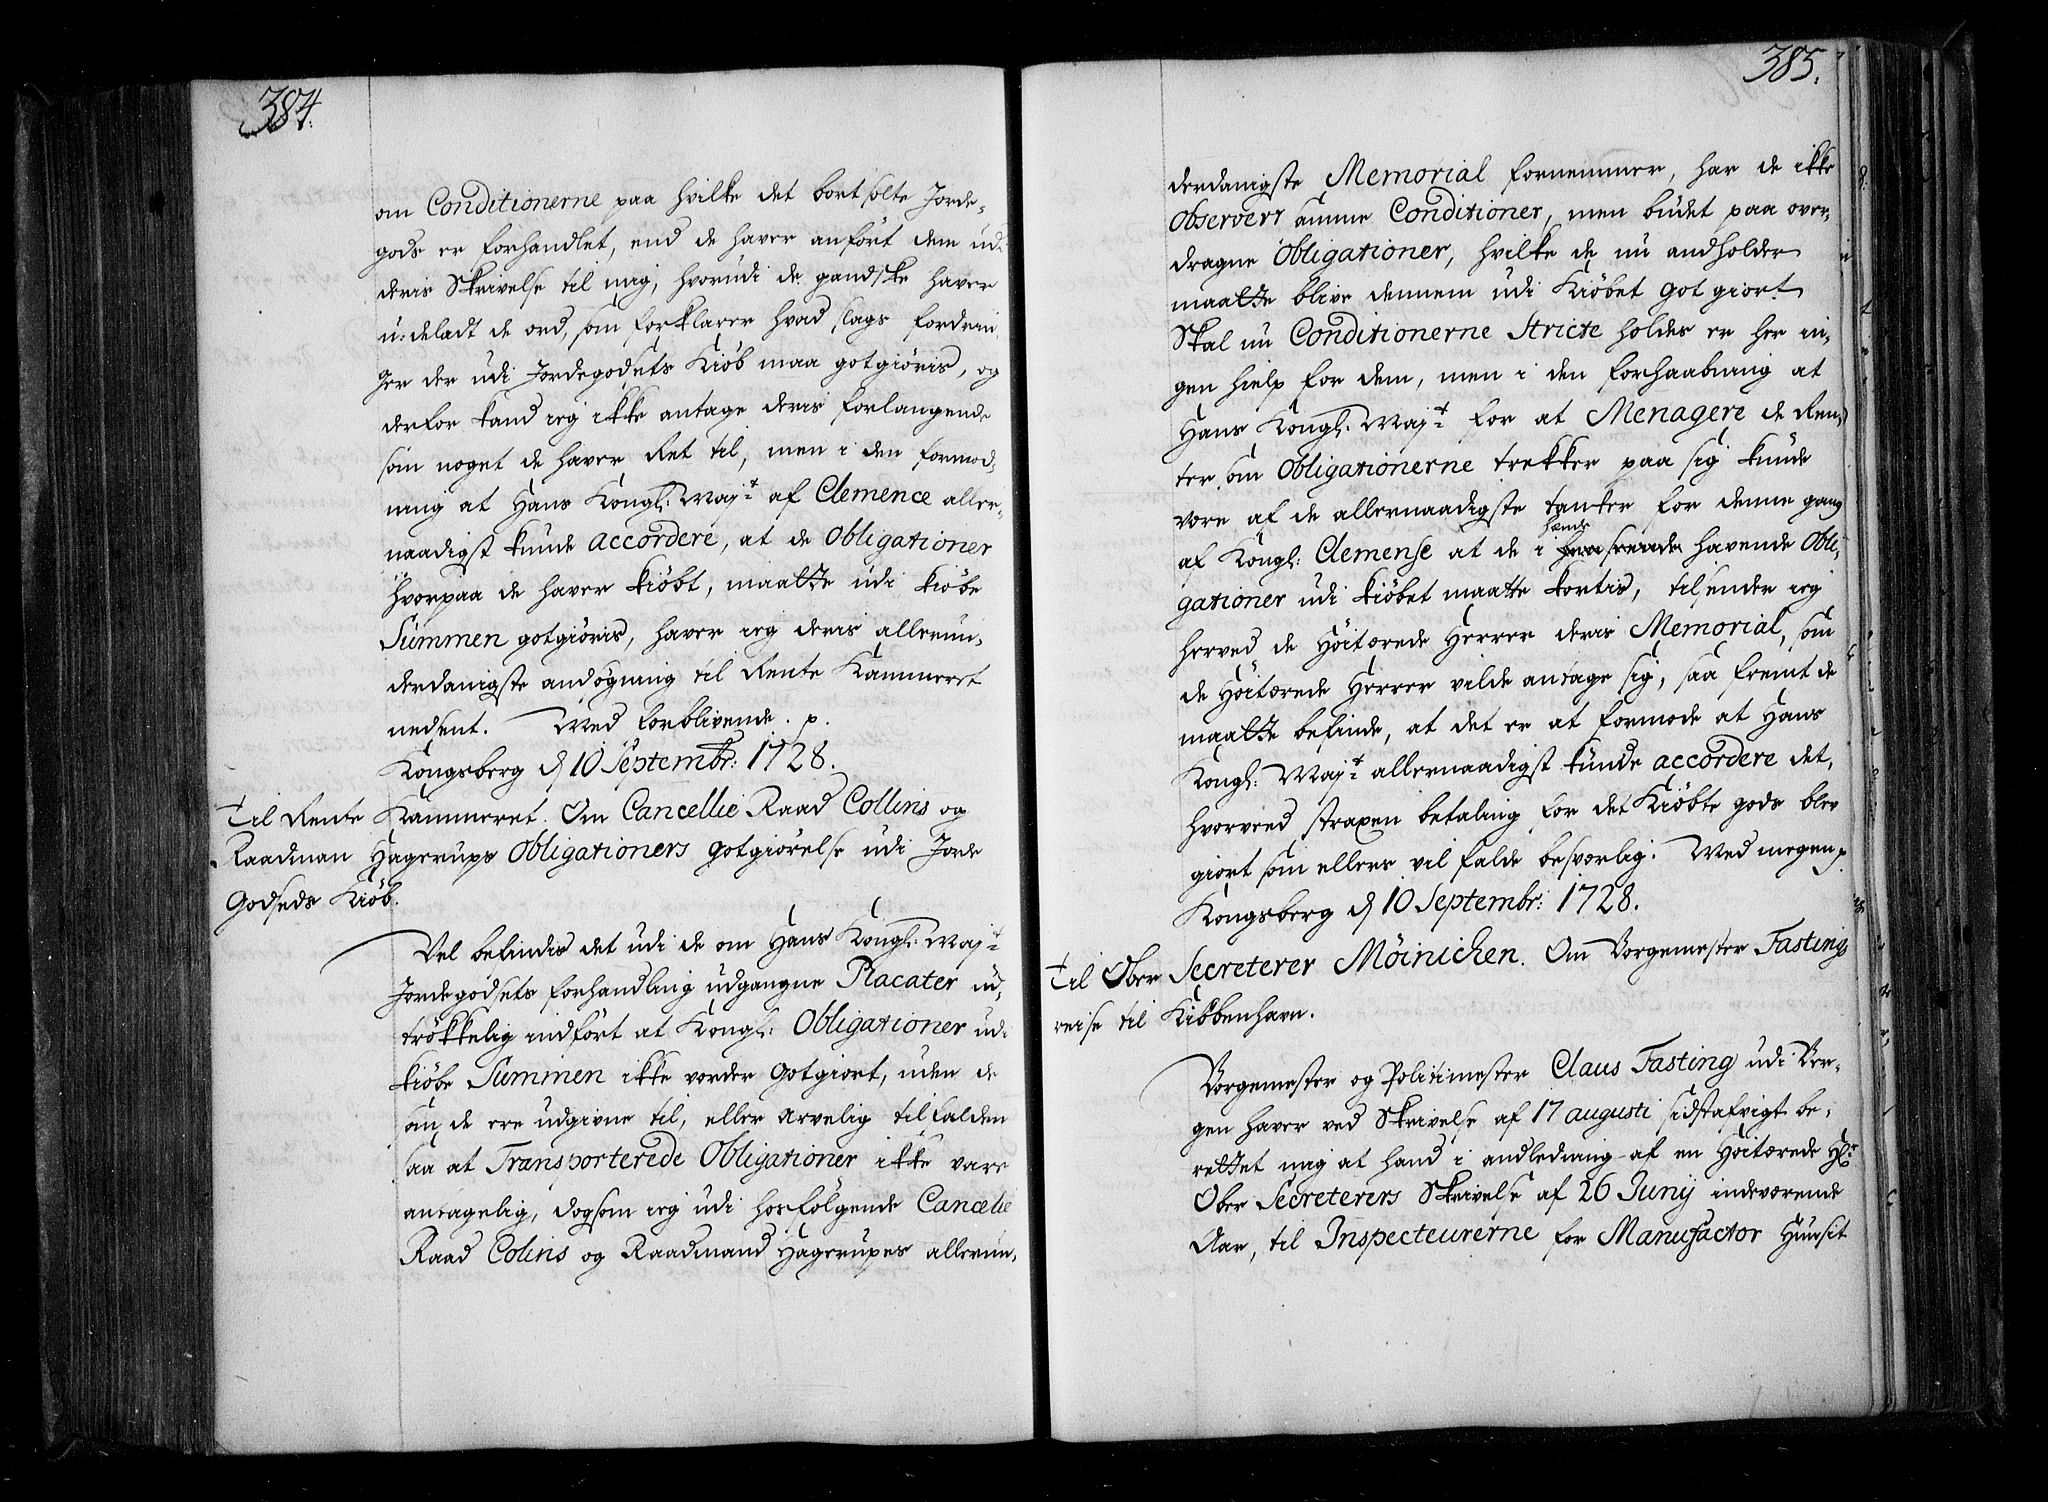 384.
om Conditionerne paa hvilke det bortsolte Jorde-
gods er forhandlet, end de haver anført dem udi
deris Skrivelse til mig, hvorudi de gandske haver
udeladt de ord, som forklarer hvad slags fordrin
ger der udi Jordegodsets Kiøb maa gotgiøris, og
derfor kand ieg ikke antage deris forlangende
som noget de haver Ret til, men i den formod-
ning at Hans Kongl: Majt af Clemence aller-
naadigst kunde accordere, at de Obligationer
hvorpaa de haver kiøbt, maatte udi kiøbe
Summen gotgiøris, haver ieg deris allerun-
derdanigste andsøgning til Rente Kammeret
nedsent. Med forblivende. p.
Kongsberg d 10 Septembr: 1728.
Til Rente Kammeret. Om Cancellie Raad Collins og
Raadman Hagerups Obligationers gotgiørelse udi Jorde
Godseds Kiøb.
Vel befindis det udi de om Hans Kongl: Majt
Jordegodsets forhandling udgangne Placater ud-
trökkelig indført at Kongl: Obligationer udi
kiøbe Summen ikke vorder gotgiort, uden de
som de ere udgivne til, eller arvelig tilfalden
saa at Transporterede Obligationer ikke vare
antagelig, dog som ieg udi hosfølgende Cancelie
Raad Colins og Raadmand Hagerupes allerun-
385.
derdanigste Memorial fornemmer, har de ikke
Observert samme Conditioner, men budet paa over-
dragne Obligationer, hvilke de nu andholder
maatte blive dennem udi Kiøbet gotgiort
Skal nu Conditionerne Stricte holdes er her in-
gen hielp for dem, men i den forhaabning at
Hans Kongl: Majt for at Menagere de Ren-
ter som Obligationerne trekker paa sig kunde
være af de allernaadigste tanker for denne gang
af Kongl: Clemense at de i hænde havende Obli-
gationer udi kiøbet maatte kortis, tilsender ieg
herved de Høitærede Herrer deris Memorial, som
de Høitærede Herrer vilde antage sig, saa fremt de
maatte befinde, at det er at formode at Hans
Kongl: Majt allernaadigst kunde accordere det,
hvorved straxen betaling for det Kiøbte gods blev
giort som ellers vil falde besværlig. Med megen p.
Kongsberg d 10 Septembr: 1728.
Til Ober Secreterer Möinichen. Om Borgemester Fastings
reise til Kiøbenhavn.
Borgemester og Politimester Claus Fasting udi Ber-
gen haver ved Skrivelse af 17 augusti sidstafvigt be-
rettet mig at hand i andledning af en Høitærede Hr
Ober Secreterers Skrivelse af 26 Junij indeværende
Aar, til Inspecteurerne for Manufactor Huusit